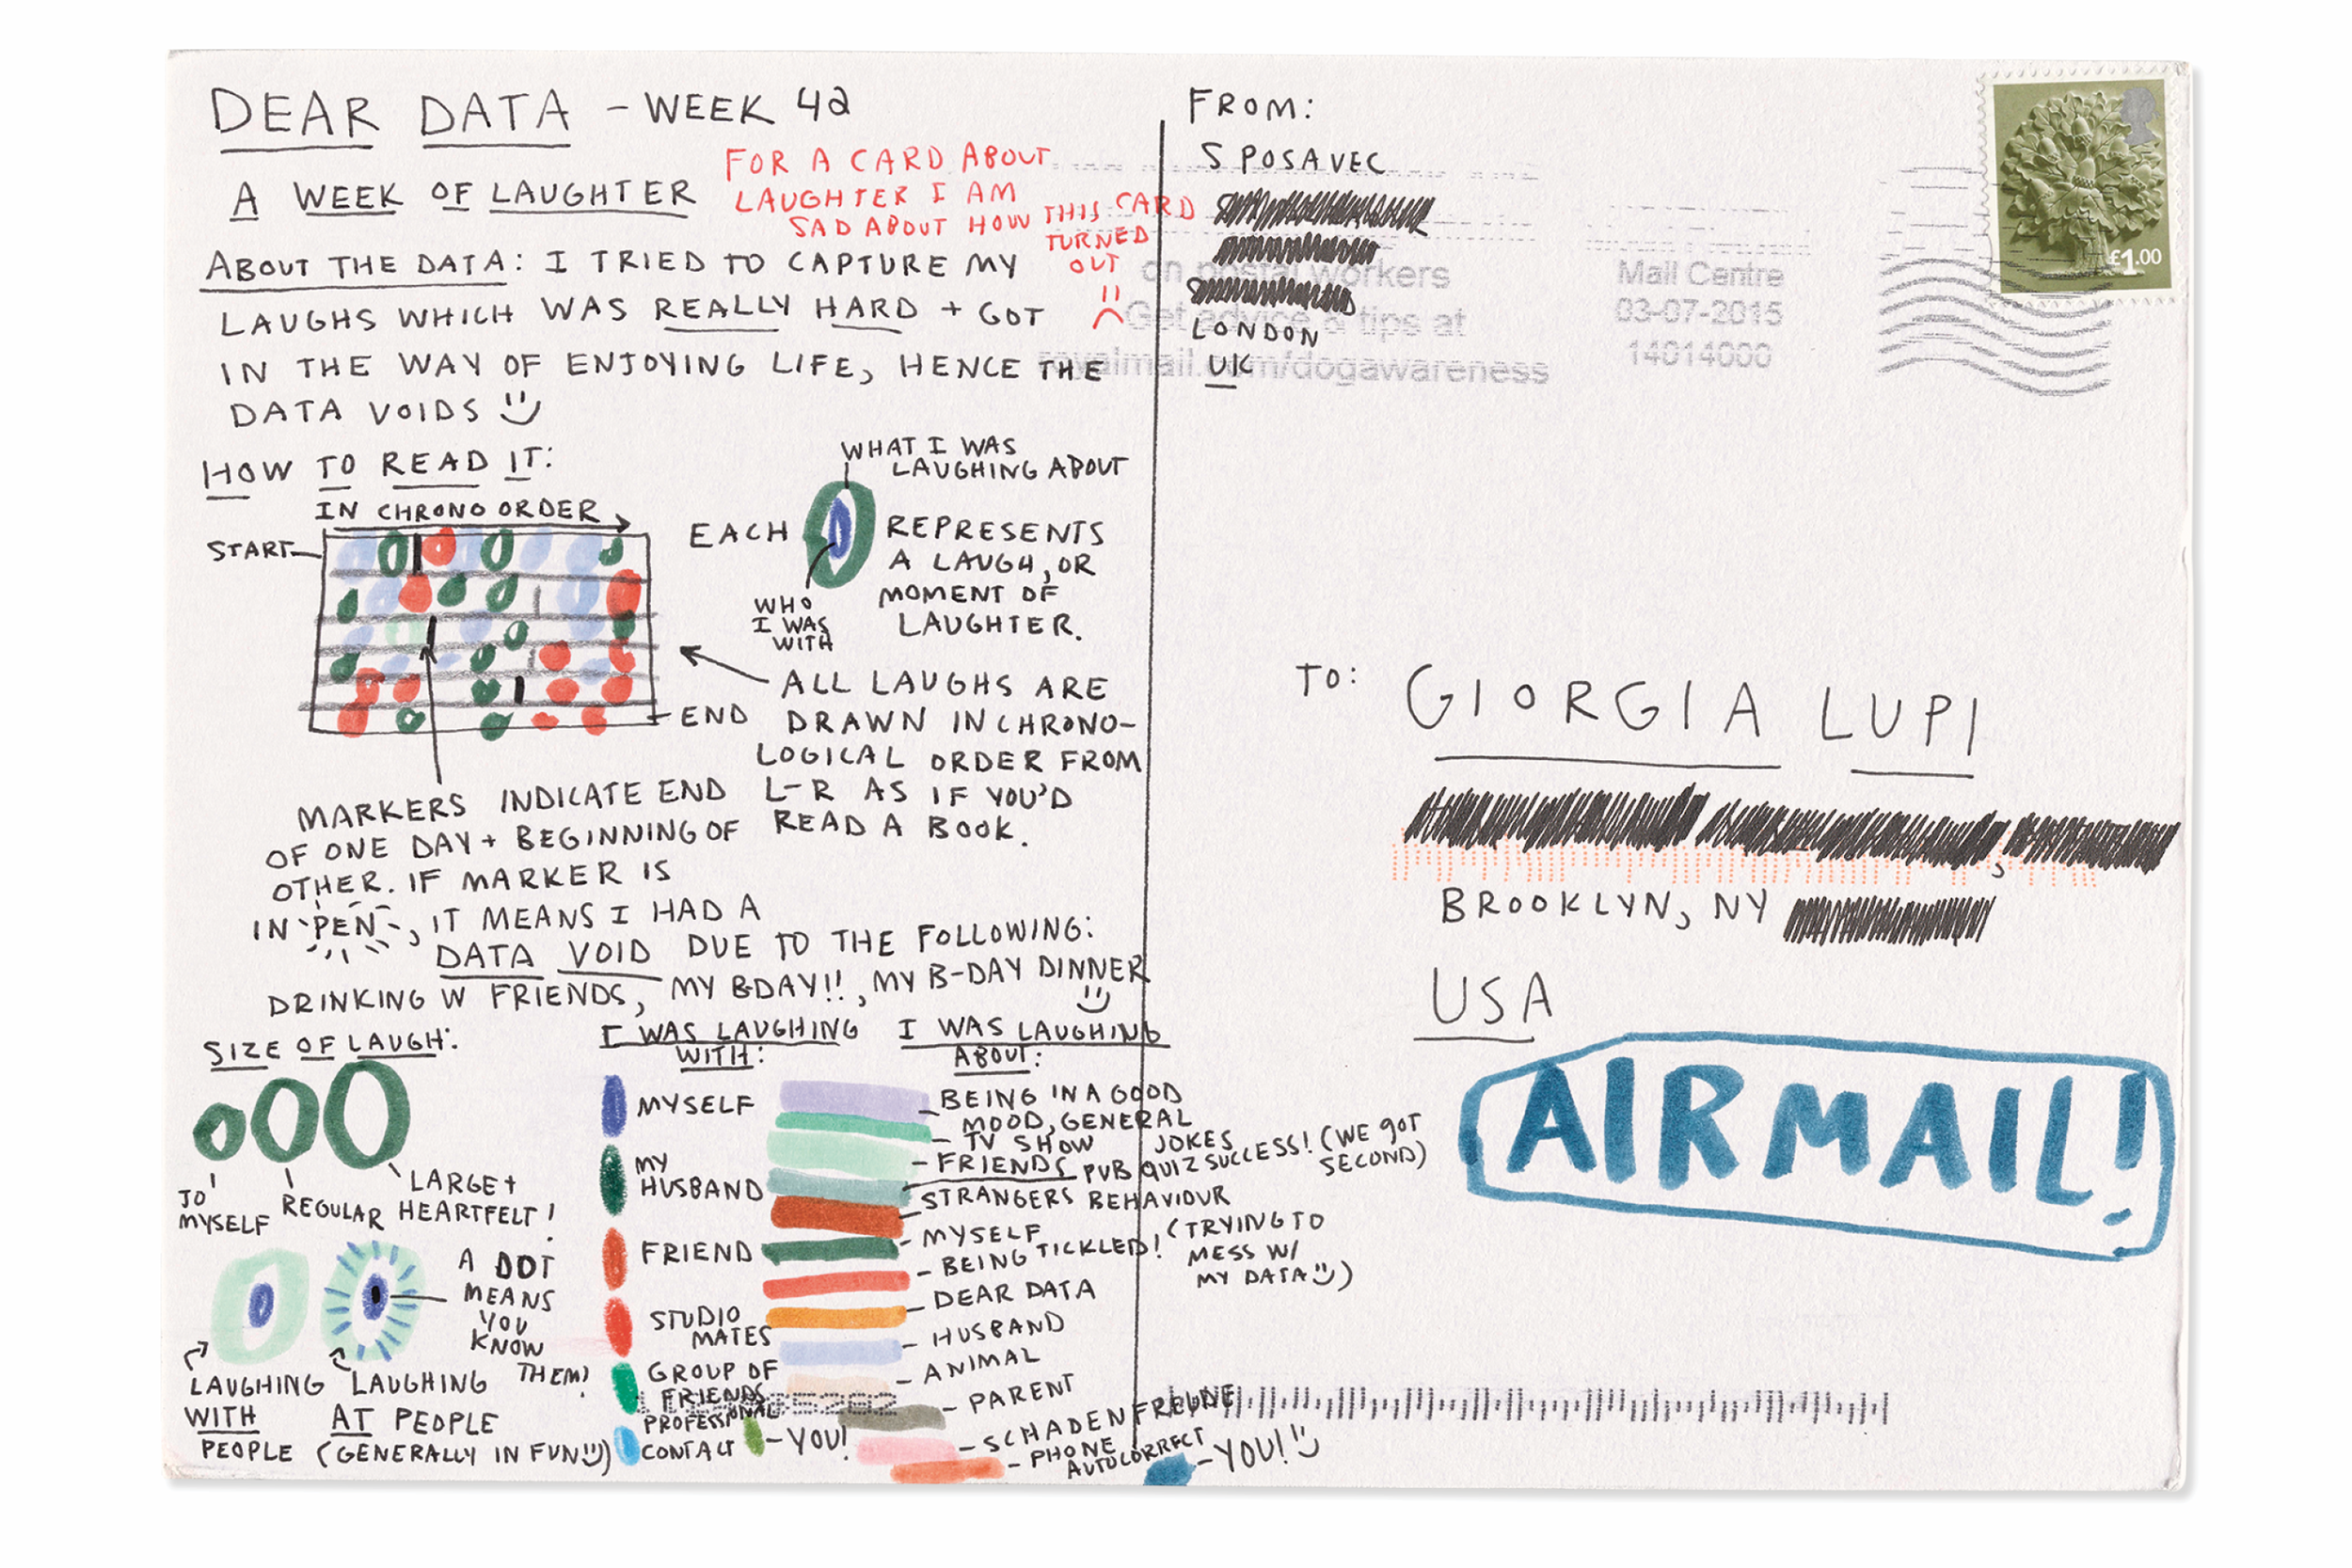 DEAR DATA - WEEK 42
A WEEK OF LAUGHTER
FOR A CARD ABOUT
LAUGHTER I AM
SAD ABOUT HOW THIS CARD
TURNED
OUT
ABOUT THE DATA: I TRIED TO CAPTURE MY
LAUGHS WHICH WAS REALLY HARD + GOT
IN THE WAY OF ENJOYING LIFE, HENCE THE
DATA VOIDS
HOW TO READ IT:
IN CHRONO ORDER
START
END
WHAT I WAS
LAUGHING ABOUT
EACH
REPRESENTS
A LAUGH, OR
MOMENT OF
LAUGHTER.
WHO
I WAS
WITH
ALL LAUGHS ARE
DRAWN IN CHRONO-
LOGICAL ORDER FROM
L-R AS IF YOU'D
READ A BOOK.
MARKERS INDICATE END
OF ONE DAY + BEGINNING OF
OTHER. IF MARKER IS
IN PEN, IT MEANS I HAD A
DATA VOID DUE TO THE FOLLOWING:
DRINKING W FRIENDS, MY BDAY!!, MY B-DAY DINNER
SIZE OF LAUGH:
TO
MYSELF
REGULAR
LARGE +
HEARTFELT!
A DOT
MEANS
YOU
KNOW
THEM!
LAUGHING
WITH
PEOPLE
LAUGHING
AT PEOPLE
(GENERALLY IN FUN)
I WAS LAUGHING
WITH:
MYSELF
MY
HUSBAND
FRIEND
STUDIO
MATES
GROUP OF
FRIENDS
PROFESSIONAL
CONTACT
YOU!
I WAS LAUGHING
ABOUT:
BEING IN A GOOD
MOOD, GENERAL
JOKES
TV SHOW
FRIENDS
PUB QUIZ SUCCESS! (WE GOT
SECOND)
STRANGERS BEHAVIOUR
MYSELF
BEING TICKLED! (TRYING TO
MESS W/
MY DATA)
DEAR DATA
HUSBAND
ANIMAL
PARENT
SCHADENFREUDE
PHONE
AUTOCORRECT
YOU!
FROM:
S POSAVEC
LONDON
UK
on postal workers
Get advice & tips at
royalmail.com/dogawareness
Mail Centre
03-07-2015
14014000
£1.00
TO:
GIORGIA LUPI
BROOKLYN, NY
USA
AIRMAIL!